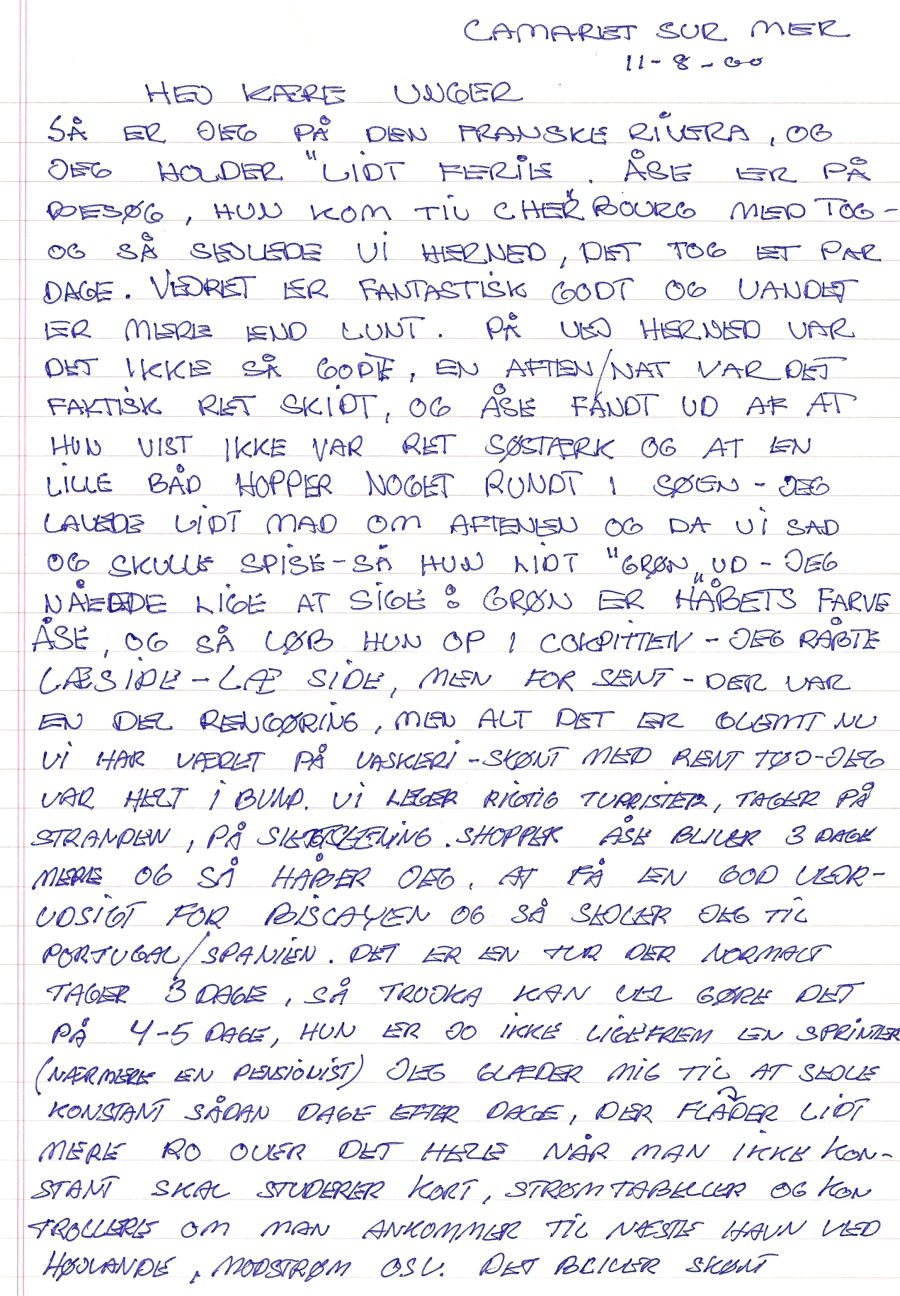 CAMARET SUR MER
11-8-00
HEJ KÆRE UNGER
SÅ ER JEG PÅ DEN FRANSKE RIVERA, OG
JEG HOLDER "LIDT FERIE. ÅSE ER PÅ
BESØG, HUN KOM TIL CHERBOURG MED TOG-
OG SÅ SEJLEDE VI HERNED, DET TOG ET PAR
DAGE. VEJRET ER FANTASTISK GODT OG VANDET
ER MERE END LUNT. PÅ VEJ HERNED VAR
DET IKKE SÅ GODT, EN AFTEN/NAT VAR DET
FAKTISK RET SKIDT, OG ÅSE FANDT UD AF AT
HUN VIST IKKE VAR RET SØSTÆRK OG AT EN
LILLE BÅD HOPPER NOGET RUNDT I SØEN - JEG
LAVEDE LIDT MAD OM AFTENEN OG DA VI SAD
OG SKULLE SPISE-SÅ HUN LIDT "GRØN" UD - JEG
NÅEDE LIGE AT SIGE: GRØN ER HÅBETS FARVE
ÅSE, OG SÅ LØB HUN OP I COKPITTEN - JEG RÅBTE
LÆSIDE - LÆ SIDE, MEN FOR SENT - DER VAR
EN DEL RENGØRING, MEN ALT DET ER GLEMT NU
VI HAR VÆRET PÅ VASKERI - SKØNT MED RENT TØJ-JEG
VAR HELT I BUND. VI LEGER RIGTIG TURRISTER, TAGER PÅ
STRANDEN, PÅ SIGTSEENING. SHOPPER ÅSE BLIVER 3 DAGE
MERE OG SÅ HÅBER JEG, AT FÅ EN GOD VEJR-
UDSIGT FOR BISCAYEN OG SÅ SEJLER JEG TIL
PORTUGAL/SPANIEN. DET ER EN TUR DER NORMALT
TAGER 3 DAGE, SÅ TROJKA KAN VEL GØRE DET
PÅ 4-5 DAGE, HUN ER JO IKKE LIGEFREM EN SPRINTER
(NÆRMERE EN PENSIONIST) JEG GLÆDER MIG TIL AT SEJLE
KONSTANT SÅDAN DAGE EFTER DAGE, DER FLADER LIDT
MERE RO OVER DET HELE NÅR MAN IKKE KON-
STANT SKAL STUDERER KORT, STRØMTABELLER OG KON
TROLLERE OM MAN ANKOMMER TIL NÆSTE HAVN VED
HØJVANDE, MODSTRØM OSV. DET BLIVER SKØNT